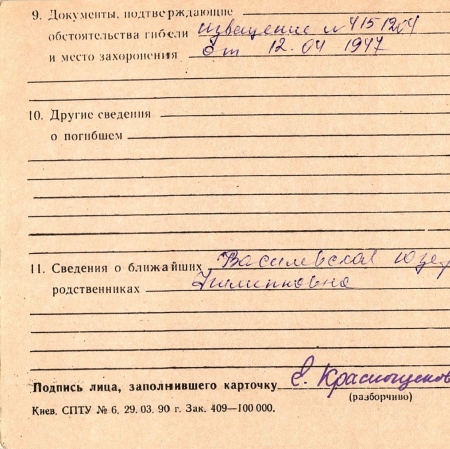 9. Документы, подтверждающие
обстоятельства гибели извещение № 4151204
и место захоронения от 12.04 1947
10. Другие сведения
о погибшем
11. Сведения о ближайших Василевская Юзе
родственниках Филипповна
Подпись лица, заполнившего карточку Е. Краснощеков
(разборчиво)
Киев. СПТУ № 6, 29. 03. 90 г. Зак. 409—100 000.